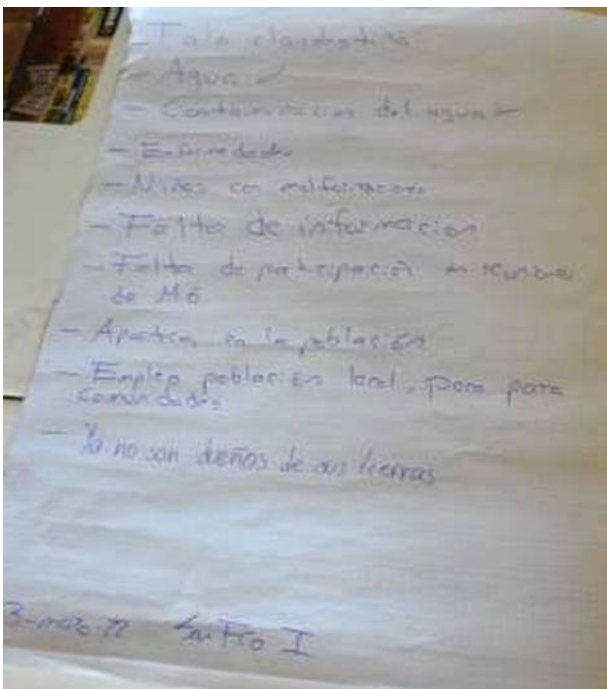 - Tala clandestina
- Agua ✓
- Contaminacion del agua ✓
- Enfermedades
- Niños con malformaciones
- Falta de informacion
- Falta de participación en reuniones
de
- Apatica en la población
- Empleo población local, poco para
comunidades
- Ya no son dueños de sus tierras
San Fco I